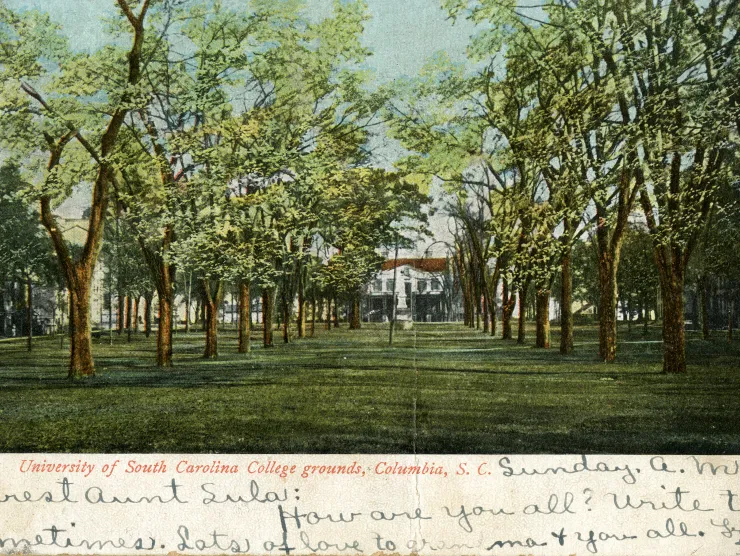 University of South Carolina College grounds, Columbia, S. C. Sunday. A. M
rest Aunt Sula:
How are you all? Write t
metimes. Lots of love to grandma & you all.